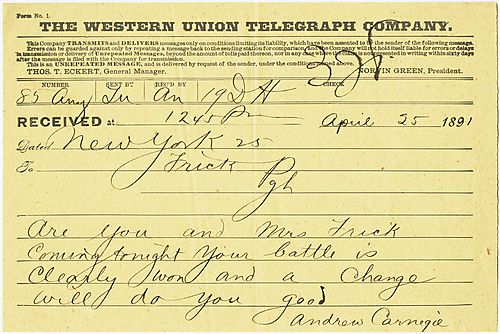 Form No. 1.
THE WESTERN UNION TELEGRAPH COMPANY.
This Company TRANSMITS and DELIVERS messages only on conditions limiting its liability, which have been assented to by the sender of the following message.
Errors can be guarded against only by repeating a message back to the sending station for comparison, and the Company will not hold itself liable for errors or delays
in transmission or delivery of Unrepeated Messages, beyond the amount of tolls paid thereon, nor in any case where the claim is not presented in writing within sixty days
after the message is filed with the Company for transmission.
This is an UNREPEATED MESSAGE, and is delivered by request of the sender, under the conditions named above.
THOS. T. ECKERT, General Manager. NORVIN GREEN, President.
NUMBER SENT BY REC'D BY CHECK
85 An 19 D H
RECEIVED at 1245 Pm April 25 1891
Dated New York 25
To Frick
Pgh
Are you and Mrs Frick
Coming tonight Your battle is
Clearly won and a Change
will do you good
Andrew Carnegie